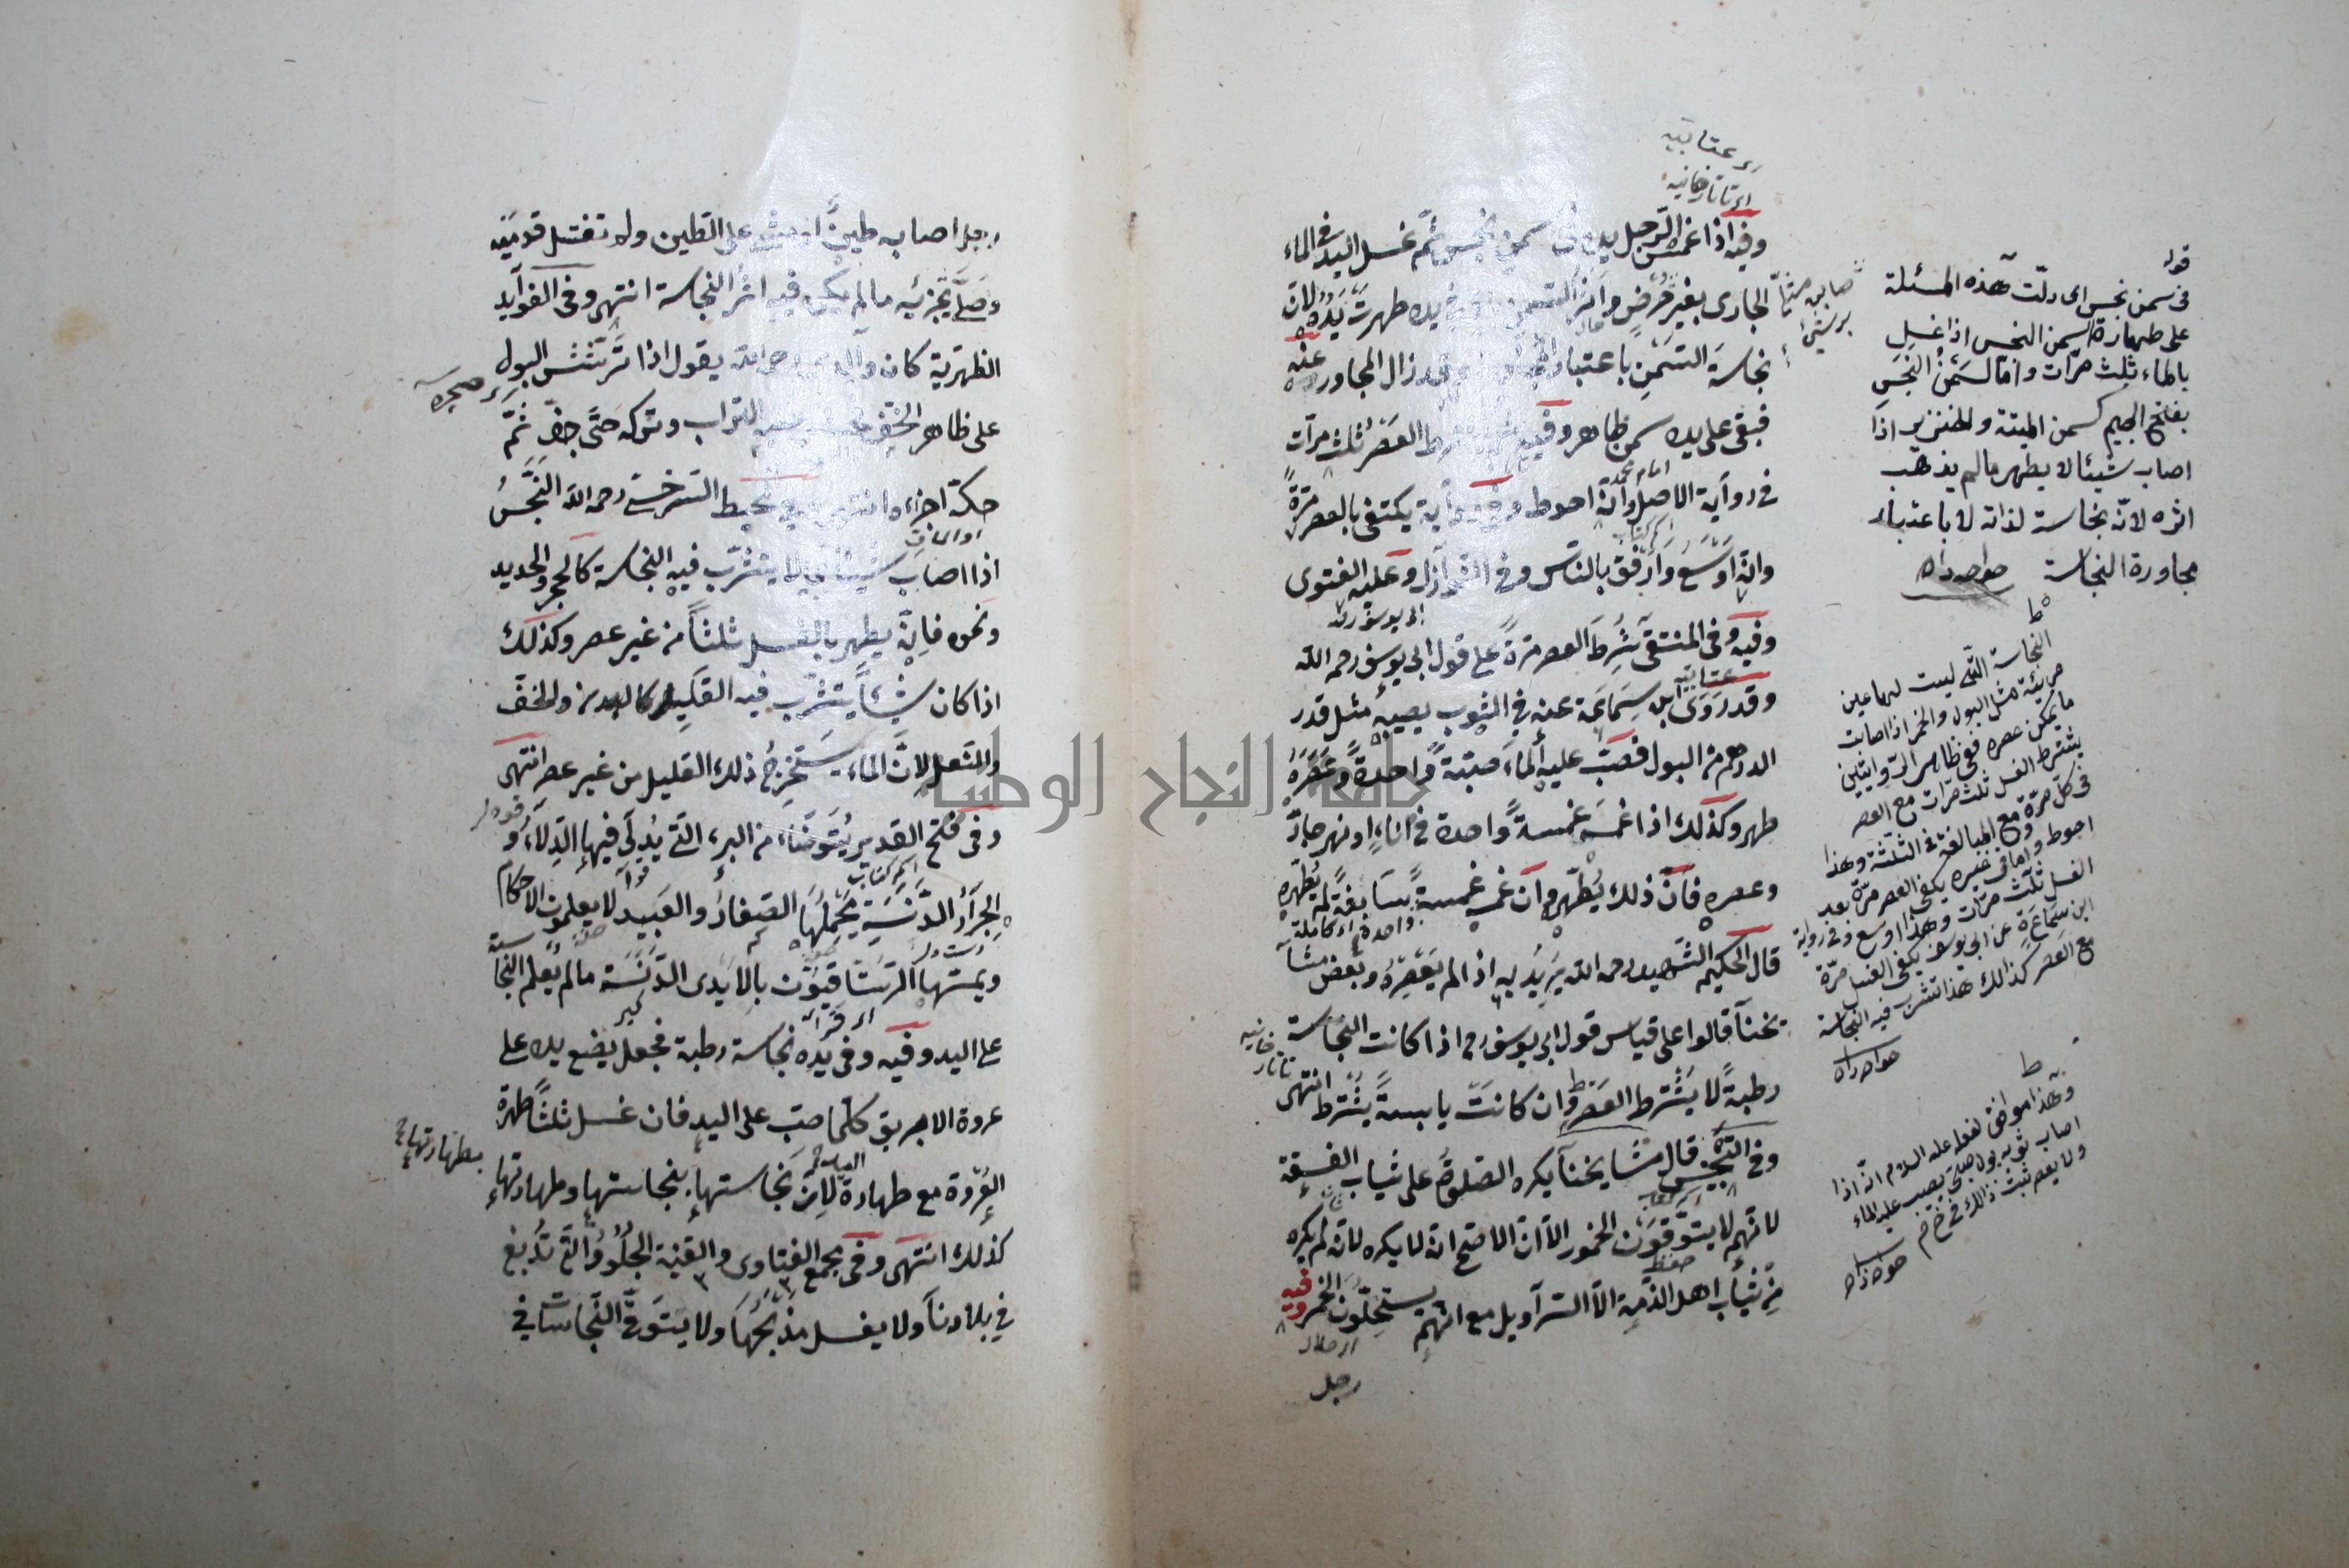 وفيه اذا غمس الرجل يده فى سمن نجس ثم غسل اليد فى الماء
الجارى بغير حرض واثر السمن يده طهرت يده لان
نجاسة السمن باعتبار زال المجاور عنه
فبقى على يده سمن طاهر وفيه شرط العصر ثلث مرات
فى رواية الاصل وانه احوط وفى رواية يكتفى بالعصر مرة
وانه اوسع وارفق بالناس وفى النوازل وعليه الفتوى
وفيه وفى المنتقى شرط العصر مرة على قول ابى يوسف رحمه الله
وقد روى ابن سماعة عنه فى الثوب يصيبه مثل قدر
الدرهم من البول فصب عليه الماء صبة واحدة وعصره
طهر وكذلك اذا غمسه غمسة واحدة فى اناء او نهر جار
وعصره فان ذلك يطهره وان غمسه غمسة سابغة لم يطهره
قال الحكيم الشهيد رحمه الله يريد به اذا لم يعصره وبعض مشا
يخنا قالوا على قياس قول ابى يوسف رح اذا كانت النجاسة
رطبة لا يشترط العصر وان كانت يابسة يشترط انتهى
وفى التجنيس قال مشايخنا يكره الصلوة على ثياب الفسقة
لانهم لا يتوقون الخمور الا ان الاصح انه لا يكره لانه لم يكره
من ثياب اهل الذمة الا السراويل مع انهم يستحلون الخمر وفيه
رجل
عتابيه
تاتارخانيه
صابن
امام محمد
ابى يوسف
عتابيه
واحدة كاملة
تاتارخانيه
حفظ
قوله
فى سمن نجس اى دلت هذه المسئلة
على طهارة السمن النجس اذا غسل
بالماء ثلث مرات واما سمن النجس
بفتح الجيم كسمن الميتة والخنزير اذا
اصاب شيئا لا يطهر ما لم يذهب
اثره لانه نجاسة لذاته لا باعتبار
مجاورة النجاسة خواهر زاده
ط
النجاسة التى ليست لها عين
مريئة مثل البول والخمر اذا اصابت
ما يمكن عصره ففى ظاهر الروايتين
يشترط الغسل ثلث مرات مع العصر
فى كل مرة مع المبالغة فى الثلثة وهذا
احوط واما فى غيره يكفى العصر مرة بعد
الغسل ثلث مرات وهذا اوسع وفى رواية
ابن سماعة عن ابى يوسف يكفى الغسل مرة
مع العصر كذلك هذا تشرب فيه النجاسة
خواهر زاده
ط
وهذا موافق لفعله عليه السلام انه اذا
اصاب ثوبه بول صبى يصب عليه الماء
ولا يعصر ثبت ذلك فى
خواهر زاده
رجل اصابه طين او مشى على الطين ولم تغسل قدميه
وصلى تجزئيه ما لم يكن فيه اثر النجاسة انتهى وفى الفوايد
الظهرية كان والدى رحمه الله يقول اذا ترتشش البول
على ظاهر الخف عليه التراب وتركه حتى جف ثم
حكه اجزءه انتهى وفى محيط السرخسى رحمه الله النجس
اذا اصاب شيئا لا يتشرب فيه النجاسة كالحجر والحديد
ونحوه فانه يطهر بالغسل ثلثا من غير عصر وكذلك
اذا كان شيئا يتشرب فيه القليل كالبدن والخف
والنعل لان الماء يستخرج ذلك القليل من غير عصر انتهى
وفى فتح القدير يتوضاء من البئر التى يدلى فيها الدلاء و
الجرار الدنسة يحملها الصغار والعبيد لا يعلمون الاحكام
ويمسها الرستاقيون بالايدى الدنسة ما لم يعلم النجاسة
على اليد وفيه وفى يده نجاسة رطبة فجعل يضع يده على
عروة الابريق كلما صب على اليد فان غسل ثلثا طهرة
العروة مع طهارة لان نجاستها بنجاستها وطهارتها
بطهارتها
كذلك انتهى وفى مجمع الفتاوى والقنية الجلود التى تدبغ
فى بلادنا ولا يغسل مذبحها ولا يتوقى النجاسات فى
جامعة النجاح الوطنية